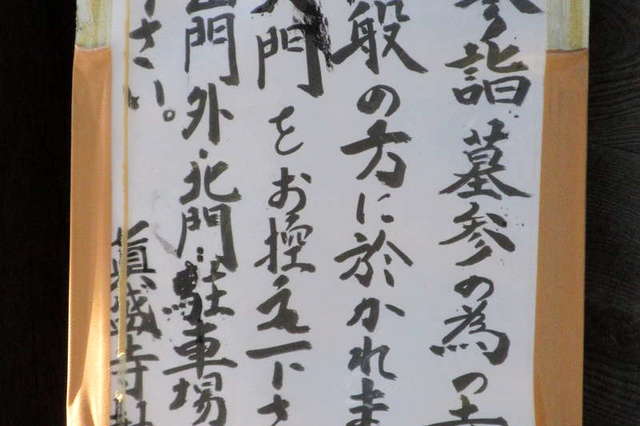 詣墓参の為の
般の方に於かれま
門をお控え下さ
門外・北門・駐車場
下さい。
真盛寺